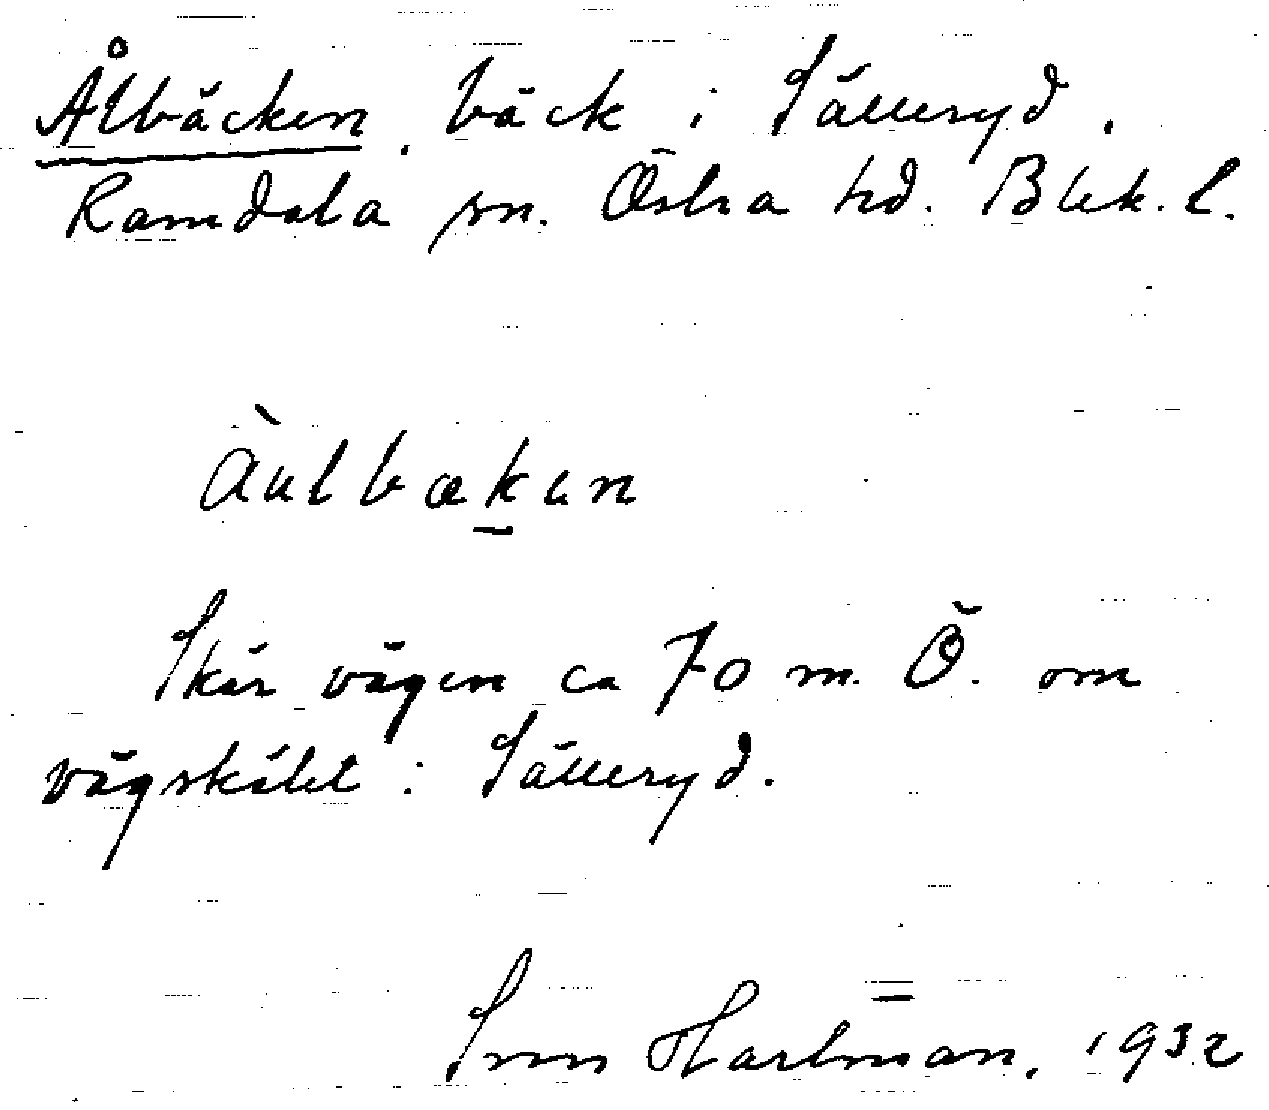 Ålbäcken, bäck i Sälleryd,
Ramdala sn. Östra hd. Blek. l.
àulbækan
Skär vägen ca 70 m. Ö. om
vägskälet i Sälleryd.
Sven Hartman, 1932